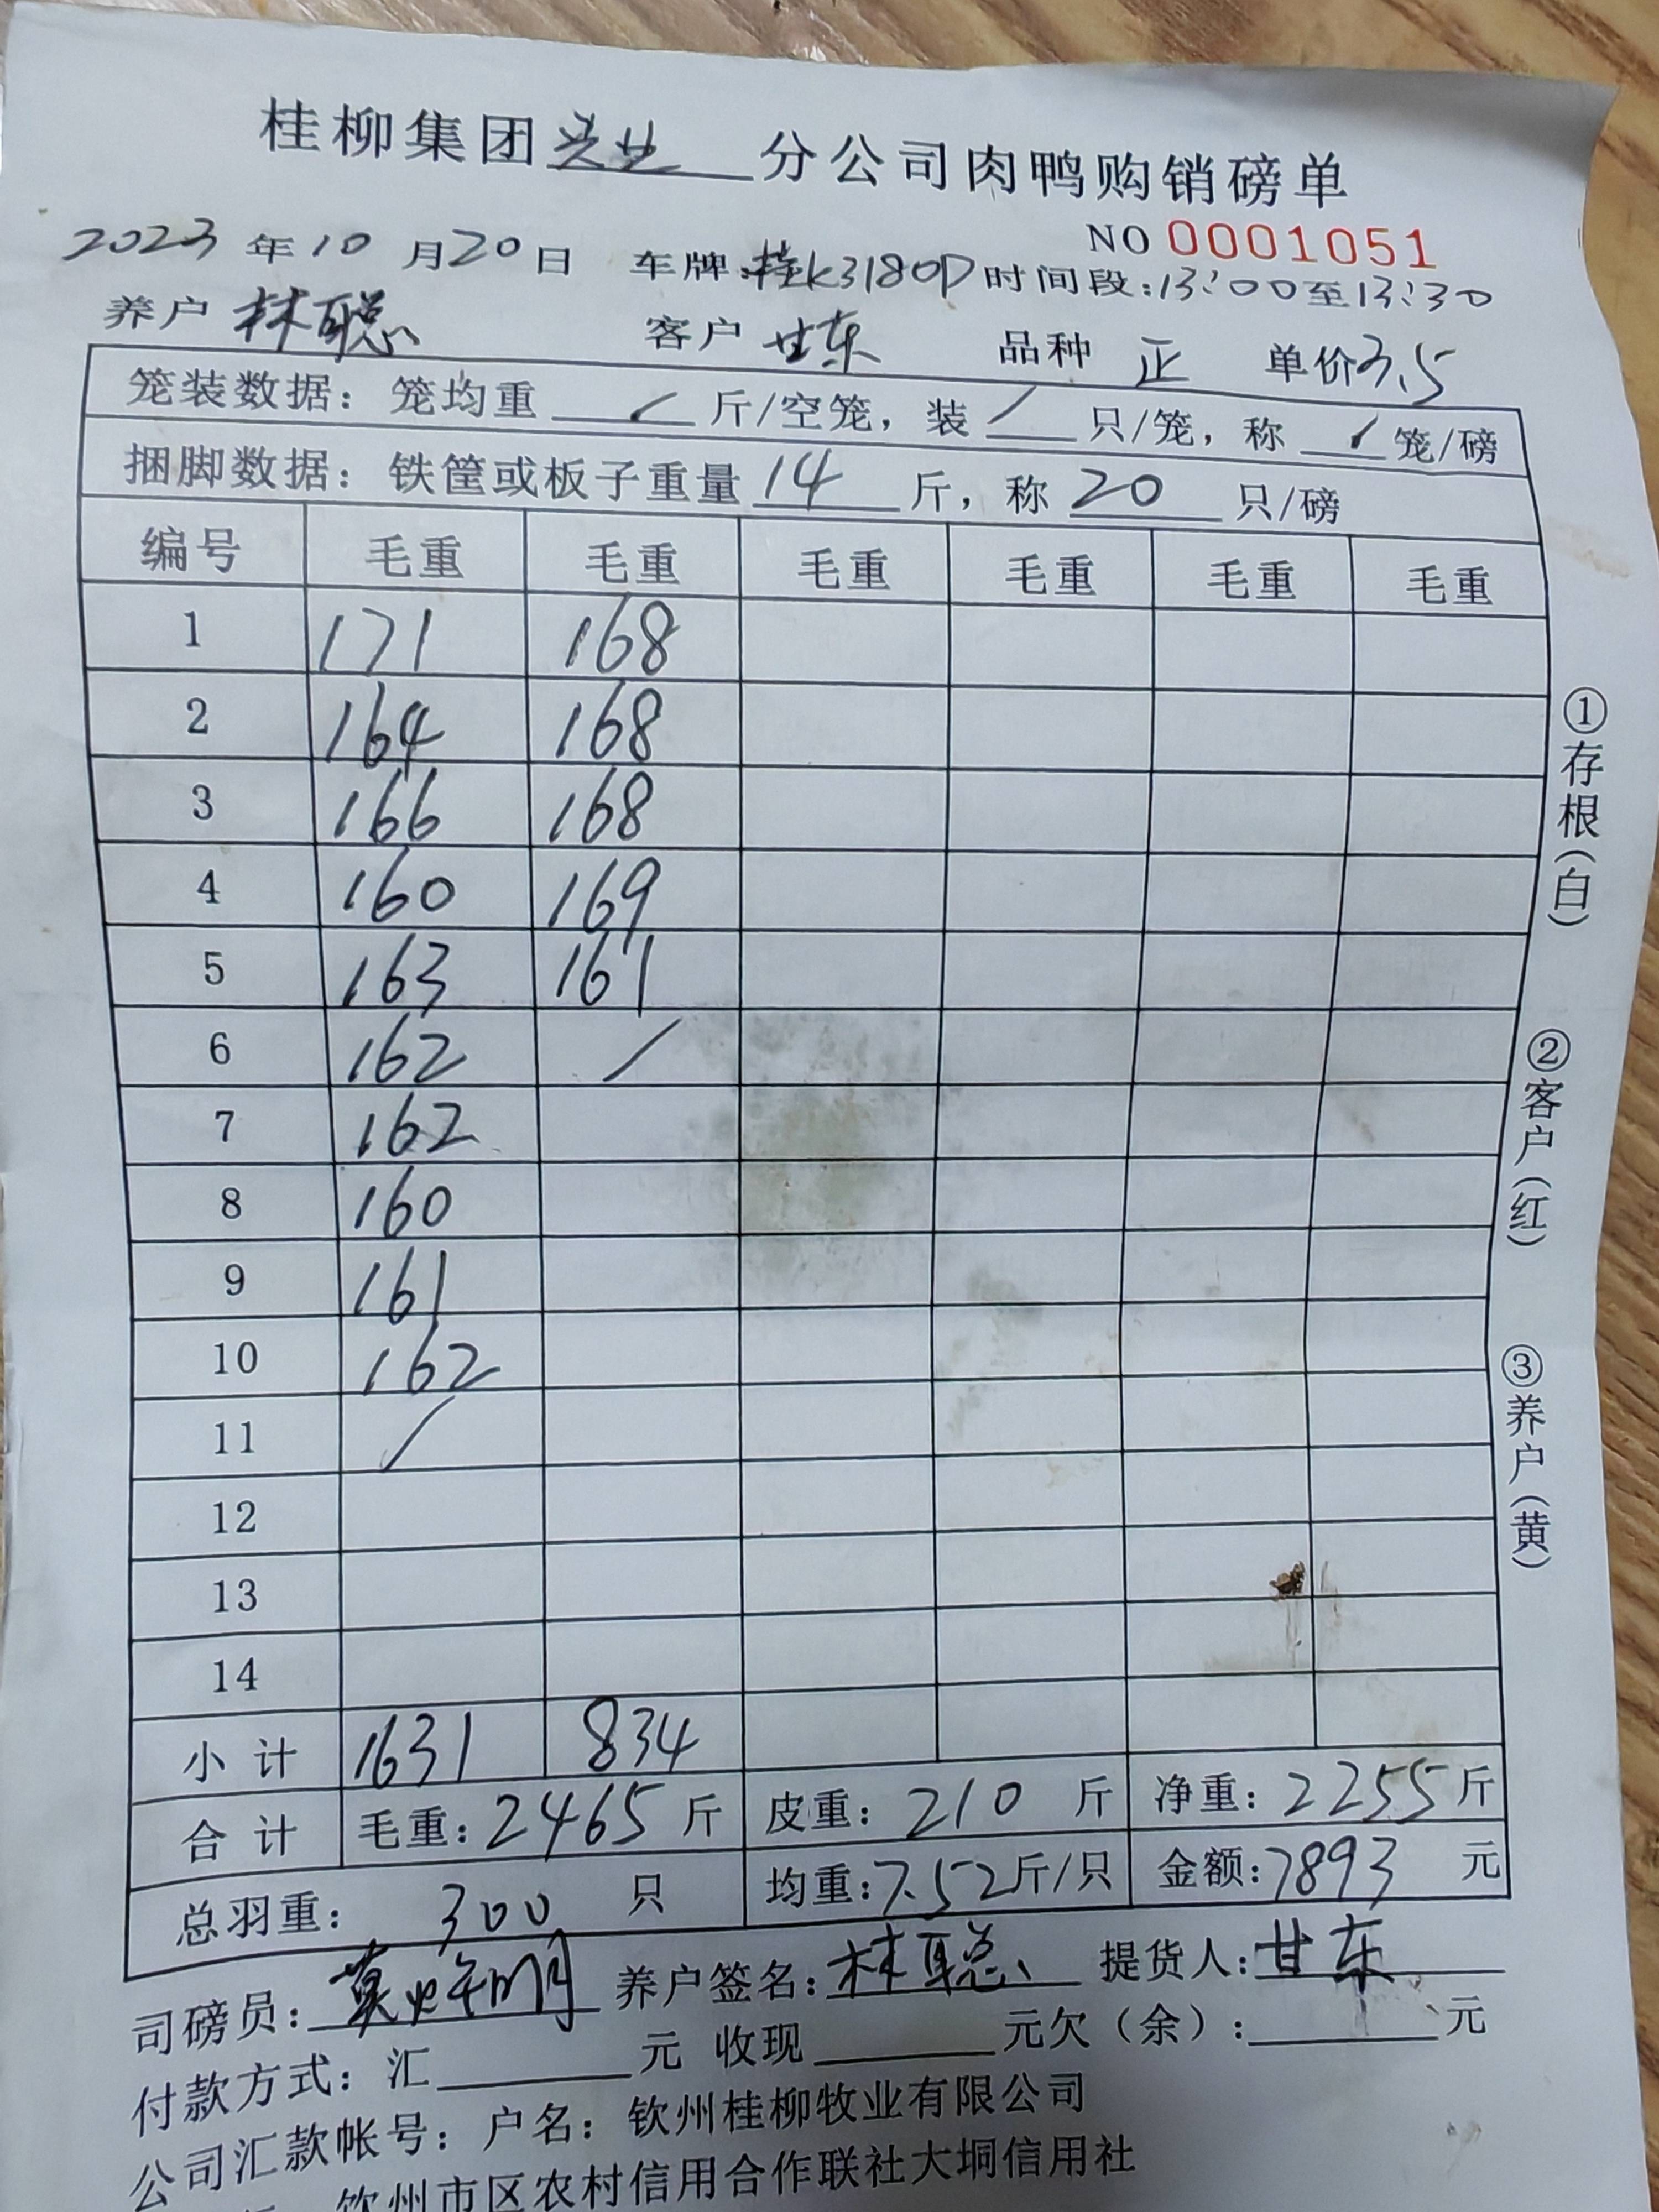 桂柳集团兴业分公司肉鸭购销磅单
NO 0001051
2023年10月20日 车牌:桂K3180P 时间段:13:00至13:30
养户 林聪 客户 甘东 品种 正 单价3.5
笼装数据：笼均重 / 斤/空笼，装 / 只/笼，称 / 笼/磅
捆脚数据：铁筐或板子重量 14 斤，称 20 只/磅
编号 毛重 毛重 毛重 毛重 毛重 毛重
1 171 168
2 164 168
3 166 168
4 160 169
5 163 161
6 162 /
7 162
8 160
9 161
10 162
11 /
12
13
14
小计 1631 834
合计 毛重：2465斤 皮重：210斤 净重：2255斤
总羽重：300只 均重:7.52斤/只 金额:7893元
司磅员： 养户签名:林聪 提货人:甘东
付款方式：汇 元 收现 元欠（余）: 元
公司汇款帐号：户名：钦州桂柳牧业有限公司
钦州市区农村信用合作联社大垌信用社
①存根(白)
②客户(红)
③养户(黄)